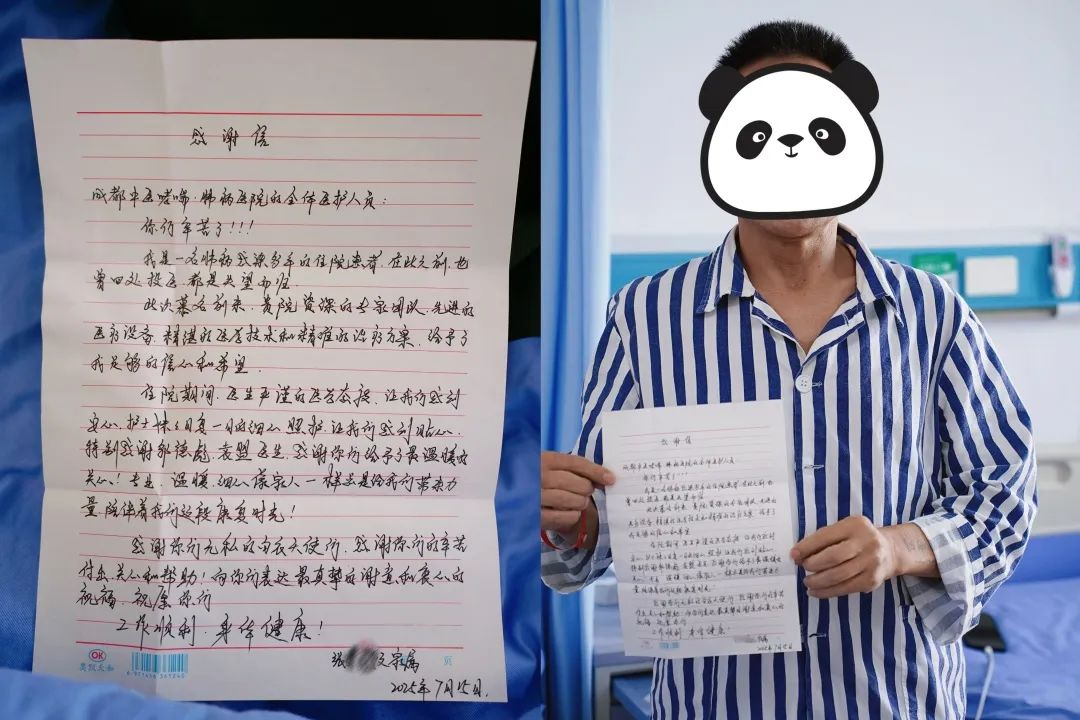 感谢信
成都中医哮喘·肺病医院的全体医护人员：
你们辛苦了！！！
我是一名肺病感染多年的住院患者，在此之前，也
曾四处投医，都是失望而归。
此次慕名前来，贵院资深的专家团队、先进的
医疗设备、精湛的医学技术和精准的治疗方案，给予了
我足够的信心和希望。
住院期间，医生严谨的医学态度，让我们感到
安心，护士妹妹日复一日的细心照护，让我们感到贴心，
特别感谢 德彪、袁盟医生，感谢你们给予了最温暖的
关心！专业、温暖、细心像家人一样总是给我们带来力
量，陪伴着我们这段康复时光！
感谢你们无私的白衣天使们，感谢你们的辛苦
付出、关心和帮助！向你们表达最真挚的谢意和衷心的
祝福，祝愿你们
工作顺利，身体健康！
张 家属
2025年7月15日.
OK
奥凯天和
页